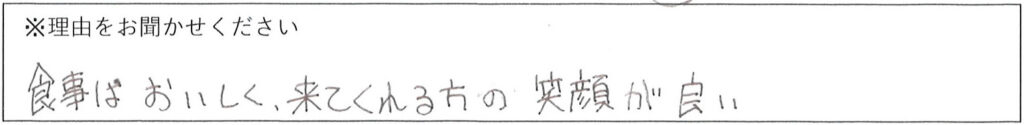 ※理由をお聞かせください
食事はおいしく、来てくれる方の笑顔が良い